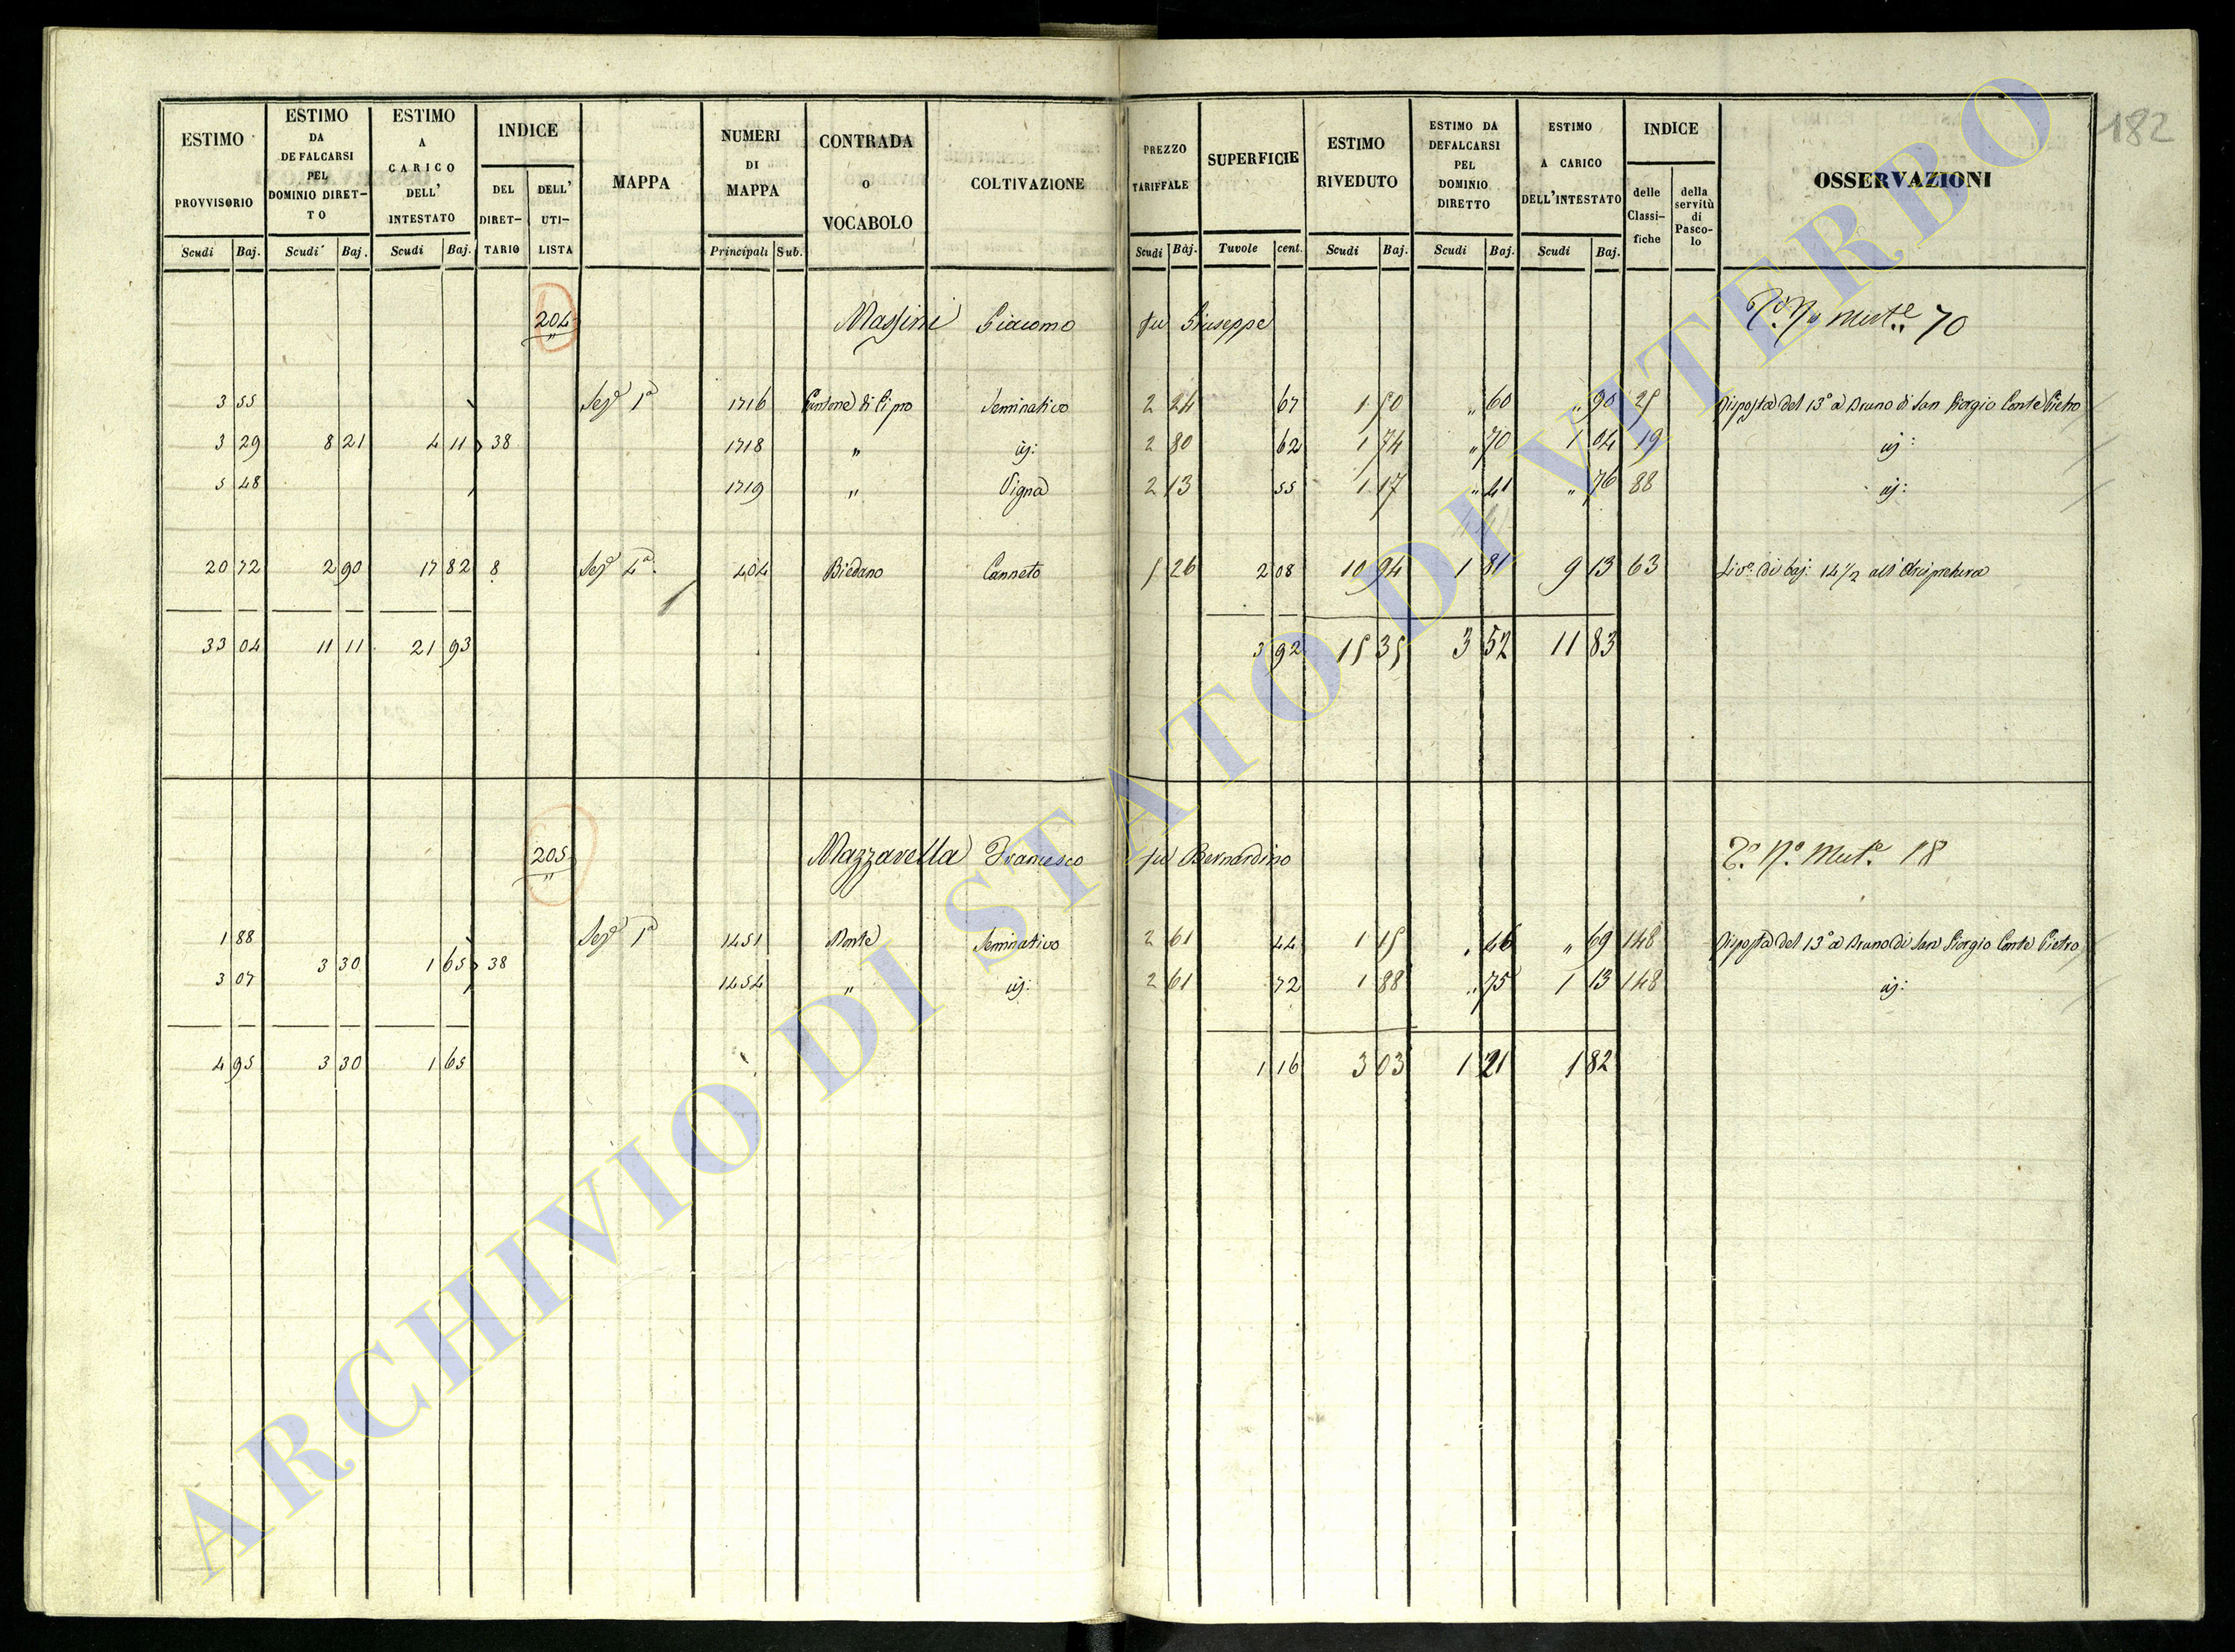 182
ESTIMO PROVVISORIO | ESTIMO DA DEFALCARSI PEL DOMINIO DIRET-TO | ESTIMO A CARICO DELL' INTESTATO | INDICE | MAPPA | NUMERI DI MAPPA | CONTRADA O VOCABOLO | COLTIVAZIONE | PREZZO TARIFFALE | SUPERFICIE | ESTIMO RIVEDUTO | ESTIMO DA DEFALCARSI PEL DOMINIO DIRETTO | ESTIMO A CARICO DELL'INTESTATO | INDICE | OSSERVAZIONI
DEL DIRET-TARIO | DELL' UTI-LISTA | delle Classi-fiche | della servitù di Pasco-lo
Scudi Baj. | Scudi Baj. | Scudi Baj. | Principali Sub. | Scudi Baj. | Tavole cent. | Scudi Baj. | Scudi Baj. | Scudi Baj.
204 Massini Giacomo fu Giuseppe 70
3 55 Sez.e 1a 1716 Seminativo 2 24 67 1 50 " 60 " 90 25 Disposta del 13° a Bruno di San Giorgio Conte Pietro
3 29 8 21 4 11 38 1718 " id: 2 80 62 1 74 " 70 1 04 19 id:
5 48 1719 " Vigna 2 13 55 1 17 " 41 " 76 88 id:
20 72 2 90 17 82 8 Sez.e 4a 404 Biedano Canneto 5 26 2 08 10 94 1 81 9 13 63 Liv.o di baj: 14 1/2 all'Arcipretura
33 04 11 11 21 93 3 92 15 35 3 52 11 83
205 Mazzarella Francesco fu Bernardino N.o Mut.e 18
1 88 Sez.e 1a 1451 Monte Seminativo 2 61 44 1 15 " 46 " 69 148 Disposta del 13° a Bruno di San Giorgio Conte Pietro
3 07 3 30 1 65 38 1454 " id: 2 61 72 1 88 " 75 1 13 148 id:
4 95 3 30 1 65 1 16 3 03 1 21 1 82
ARCHIVIO DI STATO DI VITERBO